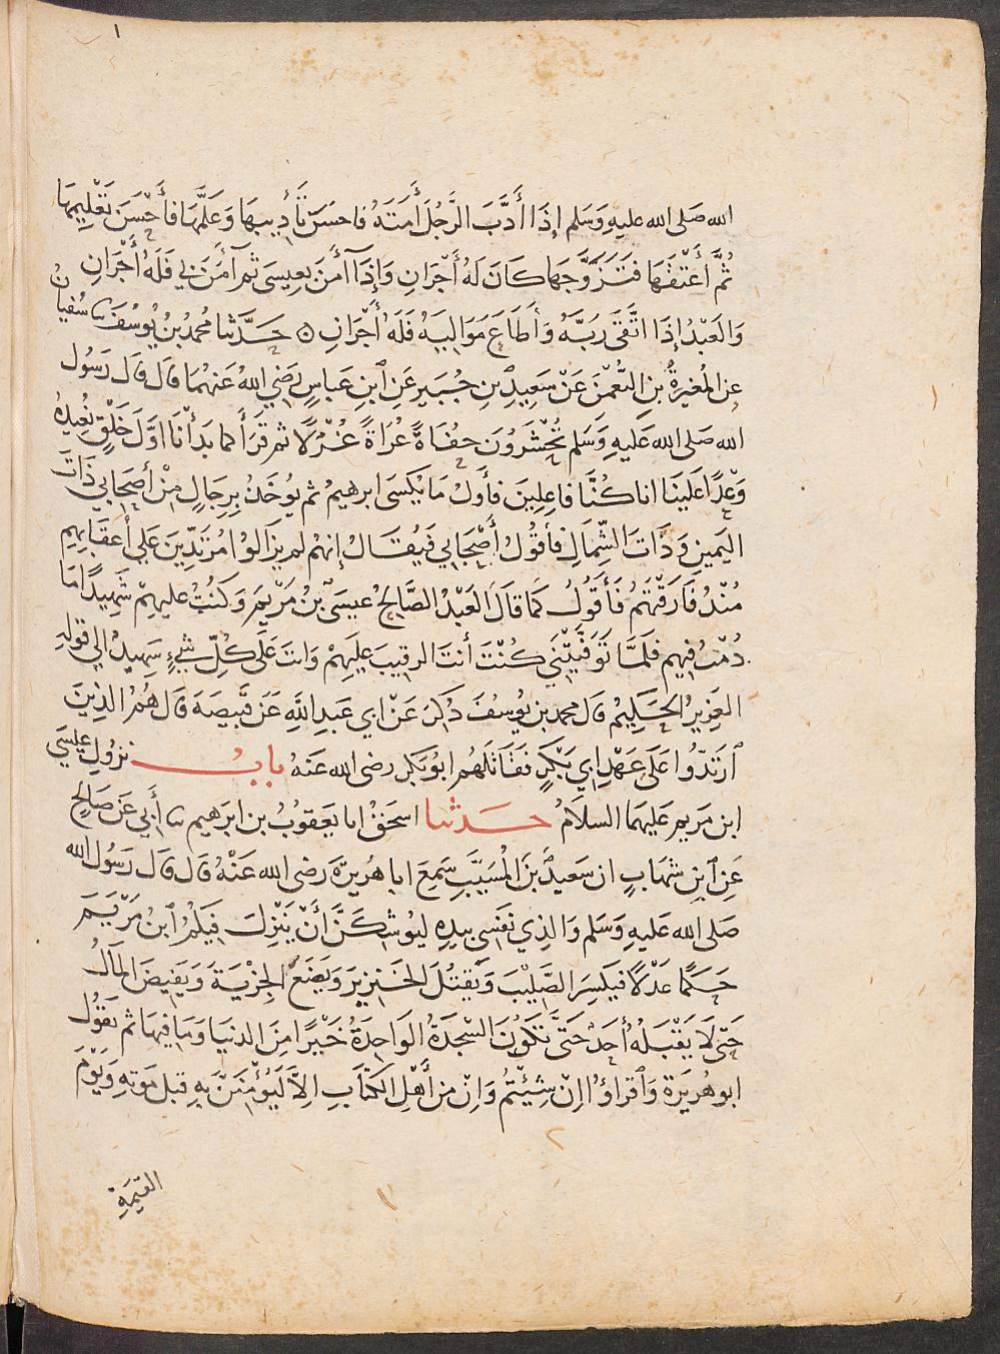 ١
الله صَلى الله عليهِ وَسَلم إِذَا أَدَّبَ الرَّجُلَ أَمَتَهُ فاحسَنَ تَأْدِيبهَا وَعَلَّمَهَا فأَحْسَنَ تَعْلِيمَهَا
ثُمَّ أَعْتَقَهَا فَتَزَوَّجَهَا كَانَ لَهُ أَجْرَانِ وَإِذَا آمَنَ بعِيسَى ثم آمَنَ بي فَلَهُ أَجْرَانِ
وَالعَبْدُ إِذَا اتَّقَى رَبَّهُ وَأَطَاعَ مَوَاليَهُ فَلَهُ أَجْرَانِ ه حَدَّثنا محمدُ بنُ يُوسُفَ ثنا سُفيانُ
عنِ المُغيرةِ بنِ النُّعْمٰنِ عَنْ سَعِيدِ بنِ جُبَيرٍ عَنِ ٱبنِ عَباسٍ رَضي اللهُ عَنهُمَا قالَ قَالَ رَسُول
الله صَلى الله عَليهِ وَسَلم تُحْشَرُونَ حفَاةً عُرَاةً غُرْلًا ثم قَرَأ كما بَدأْنَا اوَّلَ خَلْقٍ نُعِيدُهُ
وَعْدًا عَلَينَا انا كُنَّا فاعِلِينَ فأَولُ مَا يُكسَى ابرهيمُ ثم يُوخَذُ بِرِجَالٍ مِنْ أَصحَابي ذَاتَ
اليَمينِ وَذَاتَ الشِّمَالِ فأَقُولُ أَصْحَابي فَيُقَالُ إنهُمْ لم يزَالوْا مُرْتَدِّينَ عَلى أَعقَابِهِم
مُنْذُ فَارَقْتَهُمْ فَأَقُولُ كَمَا قَالَ العَبْدُ الصَّالِحُ عيسَى بْنُ مَرْيَمَ وَكنْتُ عليهِمْ شَهِيدًا مَا
دُمْتُ فِيهِم فلَمَّا تَوَفَّيْتَنِي كُنْتَ أَنتَ الرقِيبَ عَلَيهِمْ وَانتَ عَلَى كلِّ شَيْءٍ شهِيدٌ الى قولِهِ
العَزِيزُ الحَكِيمُ قال محمد بن يُوسُفَ ذُكِرَ عَنْ ابي عَبدِ اللَّهِ عَن قَبيصَةَ قَال هُمُ الذِينَ
ٱرتَدُّوا عَلَى عَهْدِ ابي بَكْرٍ فقَاتَلَهُم ابُو بَكْرٍ رضى الله عَنهُ بابُ نزُولِ عيسَى
ابن مَريم عَليهمَا السلامُ حَدثنا اسحٰقُ انا يَعقوبُ بن ابرَهيم ثنا أَبي عَن صَالحٍ
عَنِ ٱبنِ شهَابٍ ان سَعيدَ بنَ المُسَيَّبِ سَمِعَ ابا هُرَيرَةَ رَضى الله عَنْهُ قال قَال رَسُول الله
صَلى الله عَليهِ وَسَلم وَالذِي نَفسِي بيَدِهِ ليُوشكَنَّ أَنْ يَنْزِلَ فيكُمُ ٱبنُ مَرْيَمَ
حَكَمًا عَدْلًا فيَكسِرَ الصَّليْبَ وَيَقتُلَ الخنزيرَ وَيَضَعَ الجزْيَةَ وَيَفيضَ المَالُ
حَتى لَا يَقْبَلهُ أَحَدٌ حَتَّى تَكونَ السَّجدَةُ الوَاحِدَةُ خَيْرًا مِنَ الدنيَا وَمَا فيهَا ثم يَقُولُ
ابو هُرَيرَةَ وَٱقرَاؤُا اِنْ شِئْتُمْ وَاِنْ مِنْ أَهْلِ الكتَابِ اِلَّا لَيُؤْمِنَنَّ بِهِ قبلَ مَوتِهِ وَيَوْمَ
القيمَةِ